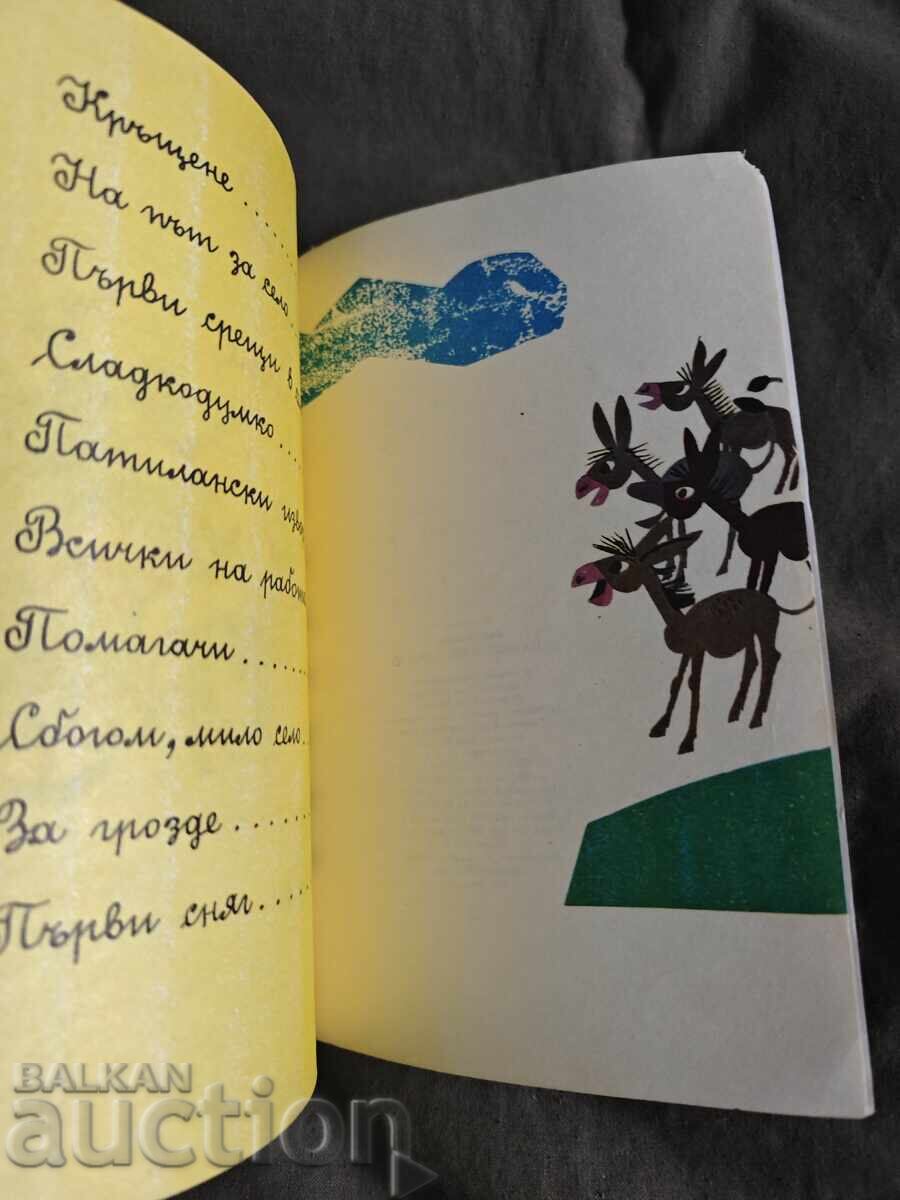 Кръщене ......
На път за село..
Първи срещи в
Сладкодумко ...
Патилански
Всички на
Помагачи ......
Сбогом, мило село..
За грозде .......
Първи сняг .....
BALKAN
auction